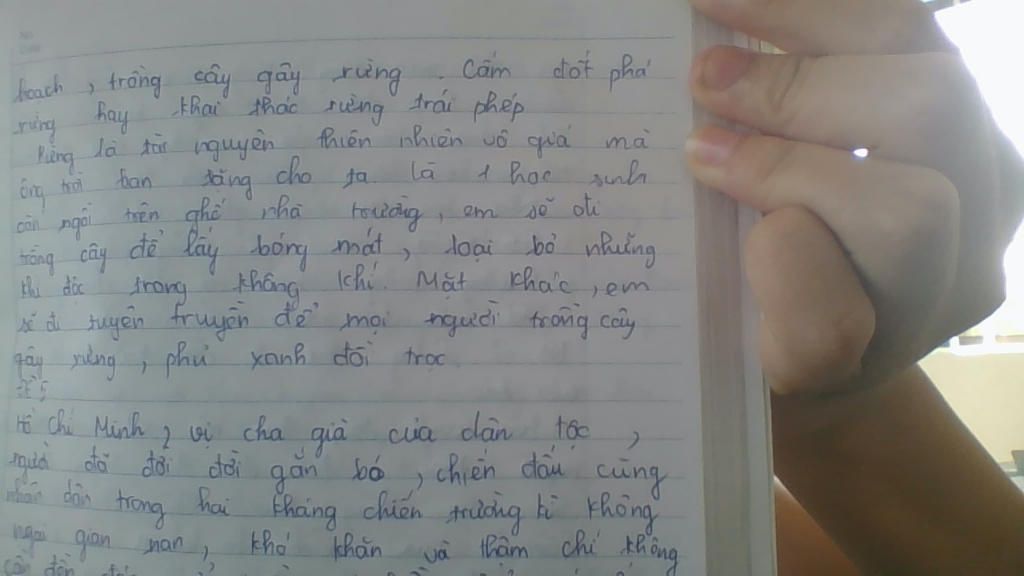 hoạch, trồng cây gây rừng. Cấm đốt phá
rừng hay khai thác rừng trái phép
Rừng là tài nguyên thiên nhiên vô giá mà
ông trời ban tặng cho ta. Là 1 học sinh
còn ngồi trên ghế nhà trường, em sẽ đi
trồng cây để lấy bóng mát, loại bỏ những
khí độc trong không khí. Mặt khác, em
sẽ đi tuyên truyền để mọi người trồng cây
gây rừng, phủ xanh đồi trọc
Đề 5
Hồ Chí Minh, vị cha già của dân tộc,
người đã đời đời gắn bó, chiến đấu cùng
nhân dân trong hai kháng chiến trường kì không
ngại gian nan, khó khăn và thậm chí không